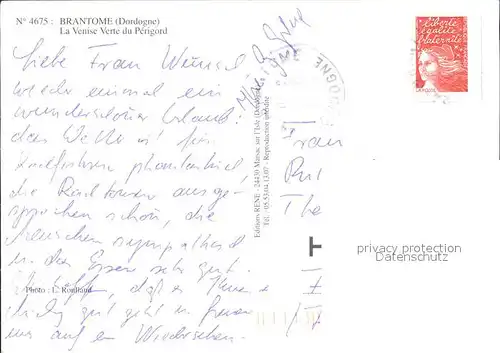 N° 4675 : BRANTOME (Dordogne)
La Venise Verte du Périgord
Liebe Frau
wieder einmal ein
wunderschöner Urlaub:
das Wetter ist für
Radfahren phantastisch,
die Radtouren ausge-
sprochen schön, die
Menschen sympathisch
und das Essen sehr gut.
Ich hoffe, daß es Ihnen
gut geht
uns auf ein Wiedersehen.
Photo : L. Roulland
Editions RENE - 24430 Marsac sur l'Isle (Dordogne)
Tél. : 05.53.04.13.07 - Reproduction interdite
DOGNE
liberté
égalité
fraternité
LA POSTE
Frau
The
privacy protection
Datenschutz